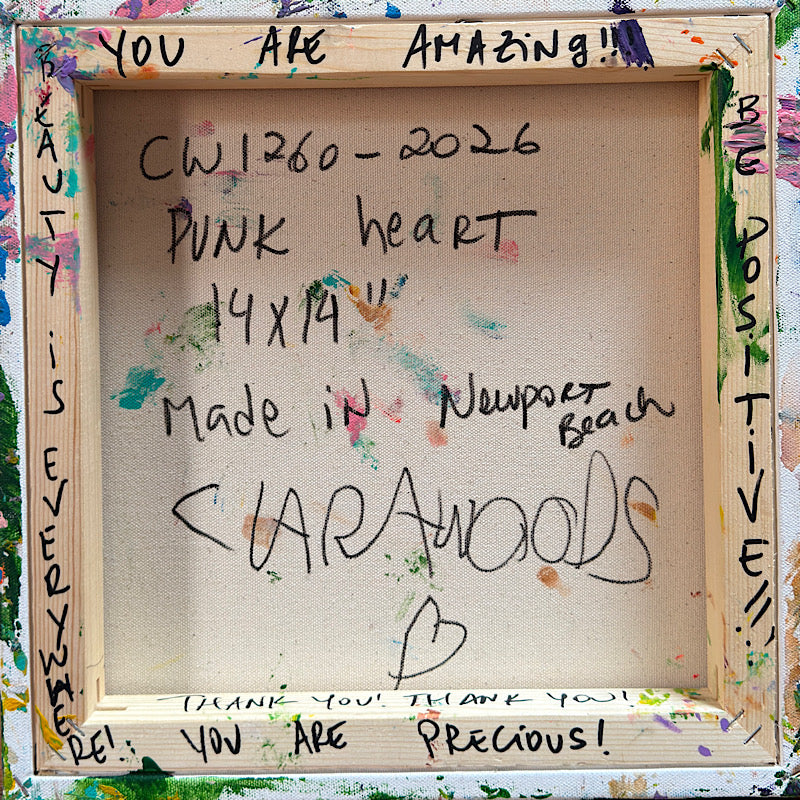 YOU ARE AMAZiNg!!
BEAUTY iS EVERYWHERE!
BE POSITIVE!!!
CW1260-2026
PUNK heART
14x14"
Made iN Newport
Beach
CLARAWOODS
THANK YOU! THANK YOU!
YOU ARE PRECiOUS!